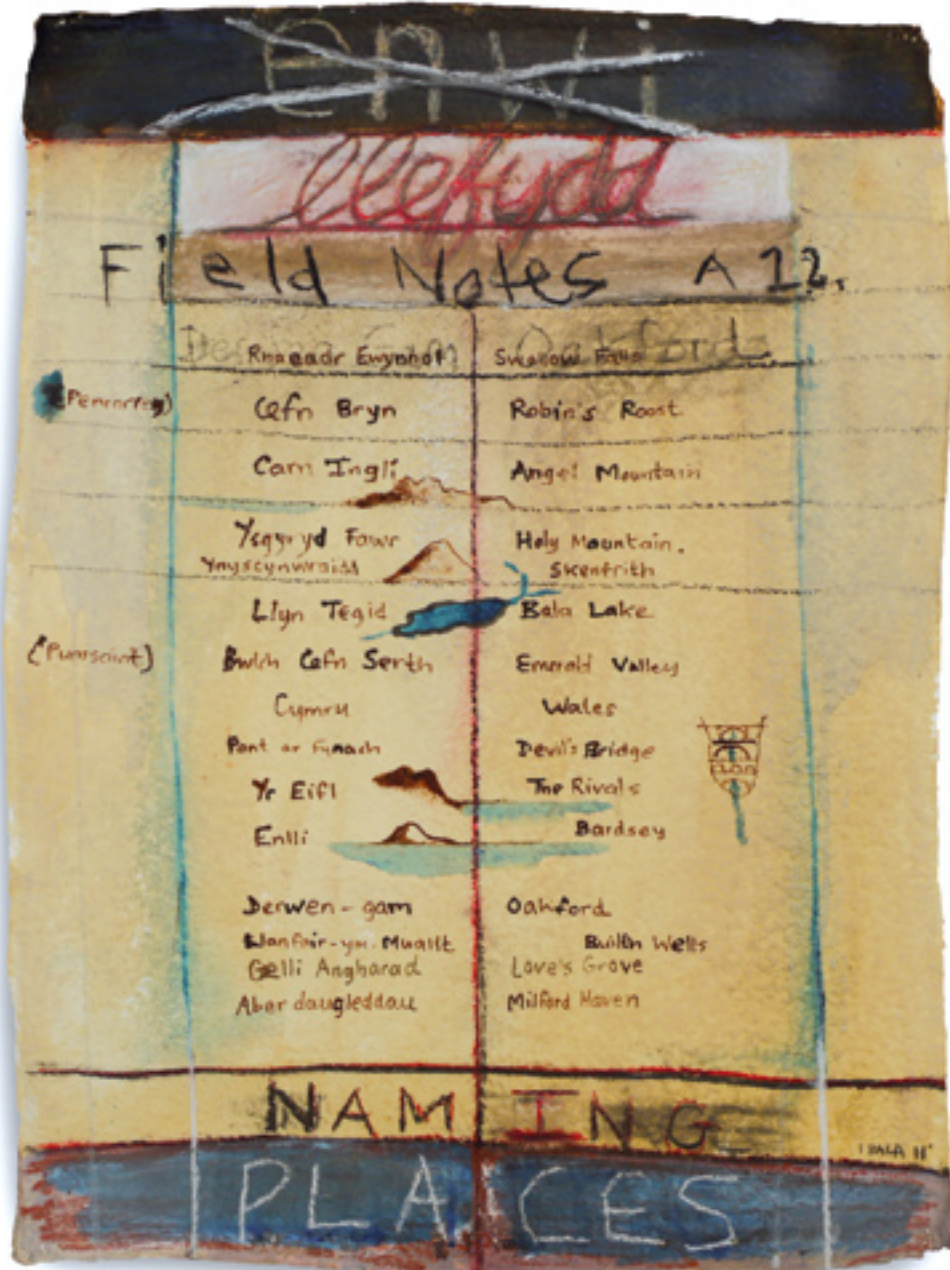 enwi
llefydd
Field Notes A12.
Oakford
Rhaeadr Ewynnol Swallow Falls
Cefn Bryn Robin's Roost
Carn Ingli Angel Mountain
Ysgyryd Fawr Holy Mountain.
Ynyscynwraidd Skenfrith
Llyn Tegid Bala Lake
(Pumsaint)
Bwlch Cefn Serth Emerald Valley
Cymru Wales
Pont ar Fynach Devil's Bridge
Yr Eifl The Rivals
Enlli Bardsey
Derwen-gam Oakford
Llanfair-ym-Muallt Builth Wells
Gelli Angharad Love's Grove
Aberdaugleddau Milford Haven
NAMING
PLACES